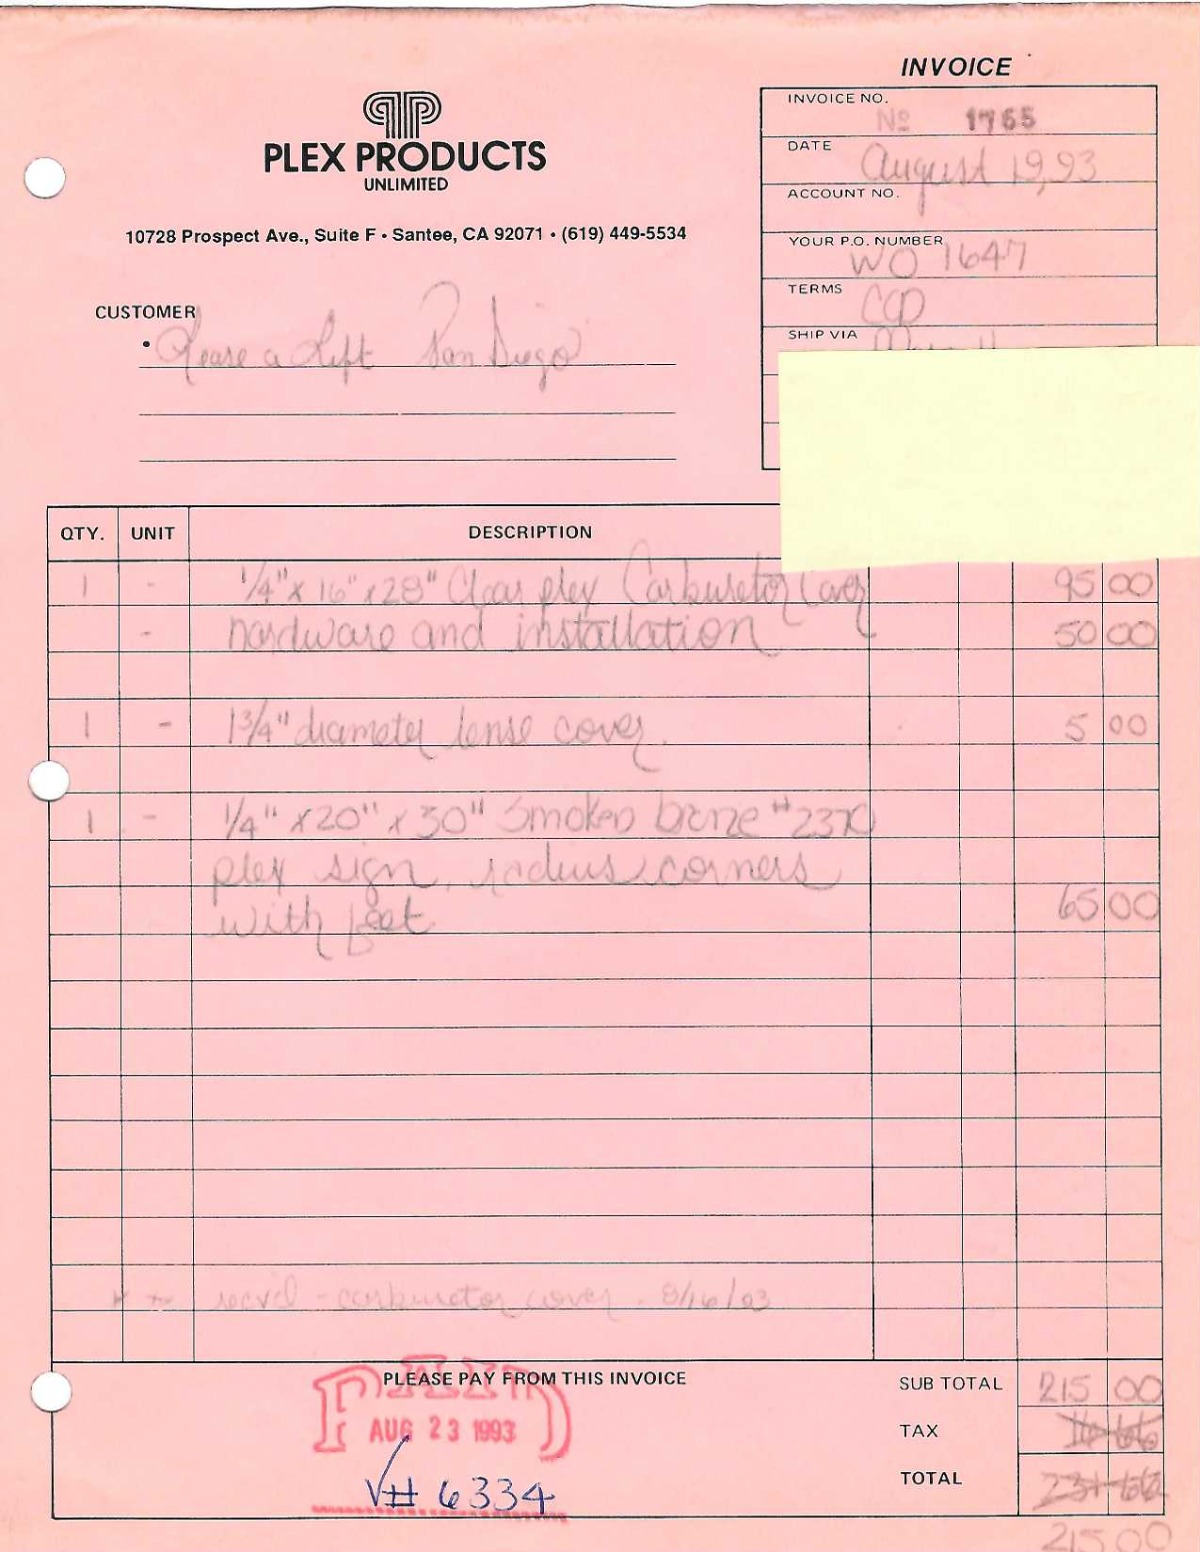 INVOICE
PLEX PRODUCTS
UNLIMITED
10728 Prospect Ave., Suite F • Santee, CA 92071 • (619) 449-5534
INVOICE NO. No 1765
DATE August 19, 93
ACCOUNT NO.
YOUR P.O. NUMBER WO 1647
TERMS COD
SHIP VIA
CUSTOMER
Lease a Lift San Diego
QTY. UNIT DESCRIPTION
1 - 1/4" x 16" x 28" Clear plex Carburetor Cover 95 00
- hardware and installation 50 00
1 - 1 3/4" diameter lense cover. 5 00
1 - 1/4" x 20" x 30" Smoked bronze #2370
plex sign, radius corners
with feet 65 00
recvd - carburetor cover - 8/16/93
PLEASE PAY FROM THIS INVOICE
PAID
AUG 23 1993
V# 6334
SUB TOTAL 215 00
TAX 16 66
TOTAL 231 66
215 00